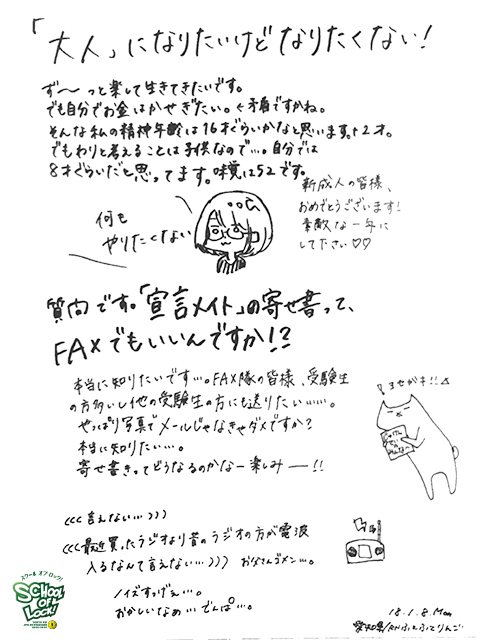 「大人」になりたいけどなりたくない!
ず〜っと楽して生きてきたいです。
でも自分でお金はかせぎたい。←矛盾ですかね。
そんな私の精神年齢は16才ぐらいかなと思います。+2才。
でもわりと考えることは子供なので…。自分では
8才ぐらいだと思ってます。味覚は52です。
何も
やりたくない
新成人の皆様、
おめでとうございます!
素敵な一年に
してださい♡♡
質問です。「宣言メイト」の寄せ書って、
FAXでもいいんですか!?
本当に知りたいです…。FAX隊の皆様、受験生
の方多いし他の受験生の方にも送りたい……。
やっぱり写真でメールじゃなきゃダメですか?
本当に知りたい…。
寄せ書きってどうなるのかなー楽しみー!!
ヨセガキ!!
(((言えない…)))
(((最近買ったラジオより昔のラジオの方が電波
入るなんて言えない…))) お父さんゴメン…。
ノイズすっげぇ…。
おかしいなぁ…でんぱ…。
スクール オブ ロック!
SCHOOL OF LOCK!
18.1.8.Mon